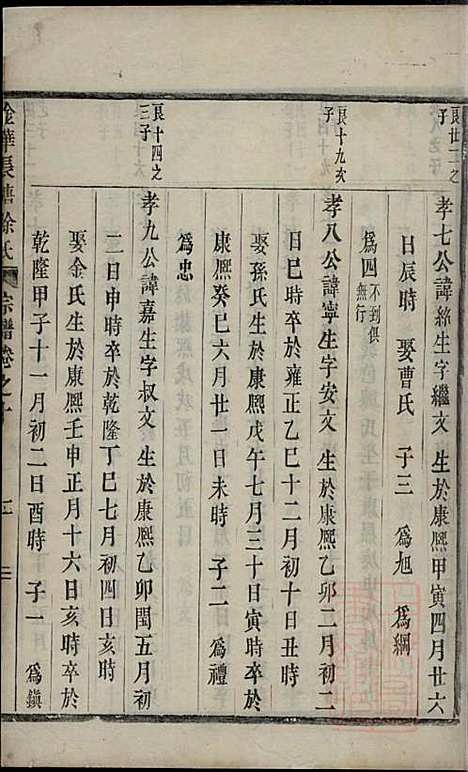 長廿二之
子
孝七公諱絲生字繼文 生於康熙甲寅四月廿六
日辰時 娶曹氏 子三 為旭 為綱
為四 不到俱
無行
長十九次
子
孝八公諱寧生字安文 生於康熙乙卯二月初二
日巳時卒於雍正乙巳十二月初十日丑時
娶孫氏生於康熙戊午七月三十日寅時卒於
康熙癸巳六月廿一日未時 子二 為禮
為忠
長十四之
三子
孝九公諱嘉生字叔文 生於康熙乙卯閏五月初
二日申時卒於乾隆丁巳七月初四日亥時
娶金氏生於康熙壬申正月十六日亥時卒於
乾隆甲子十一月初二日酉時 子一 為鎮
金華長塘徐氏
宗譜卷之